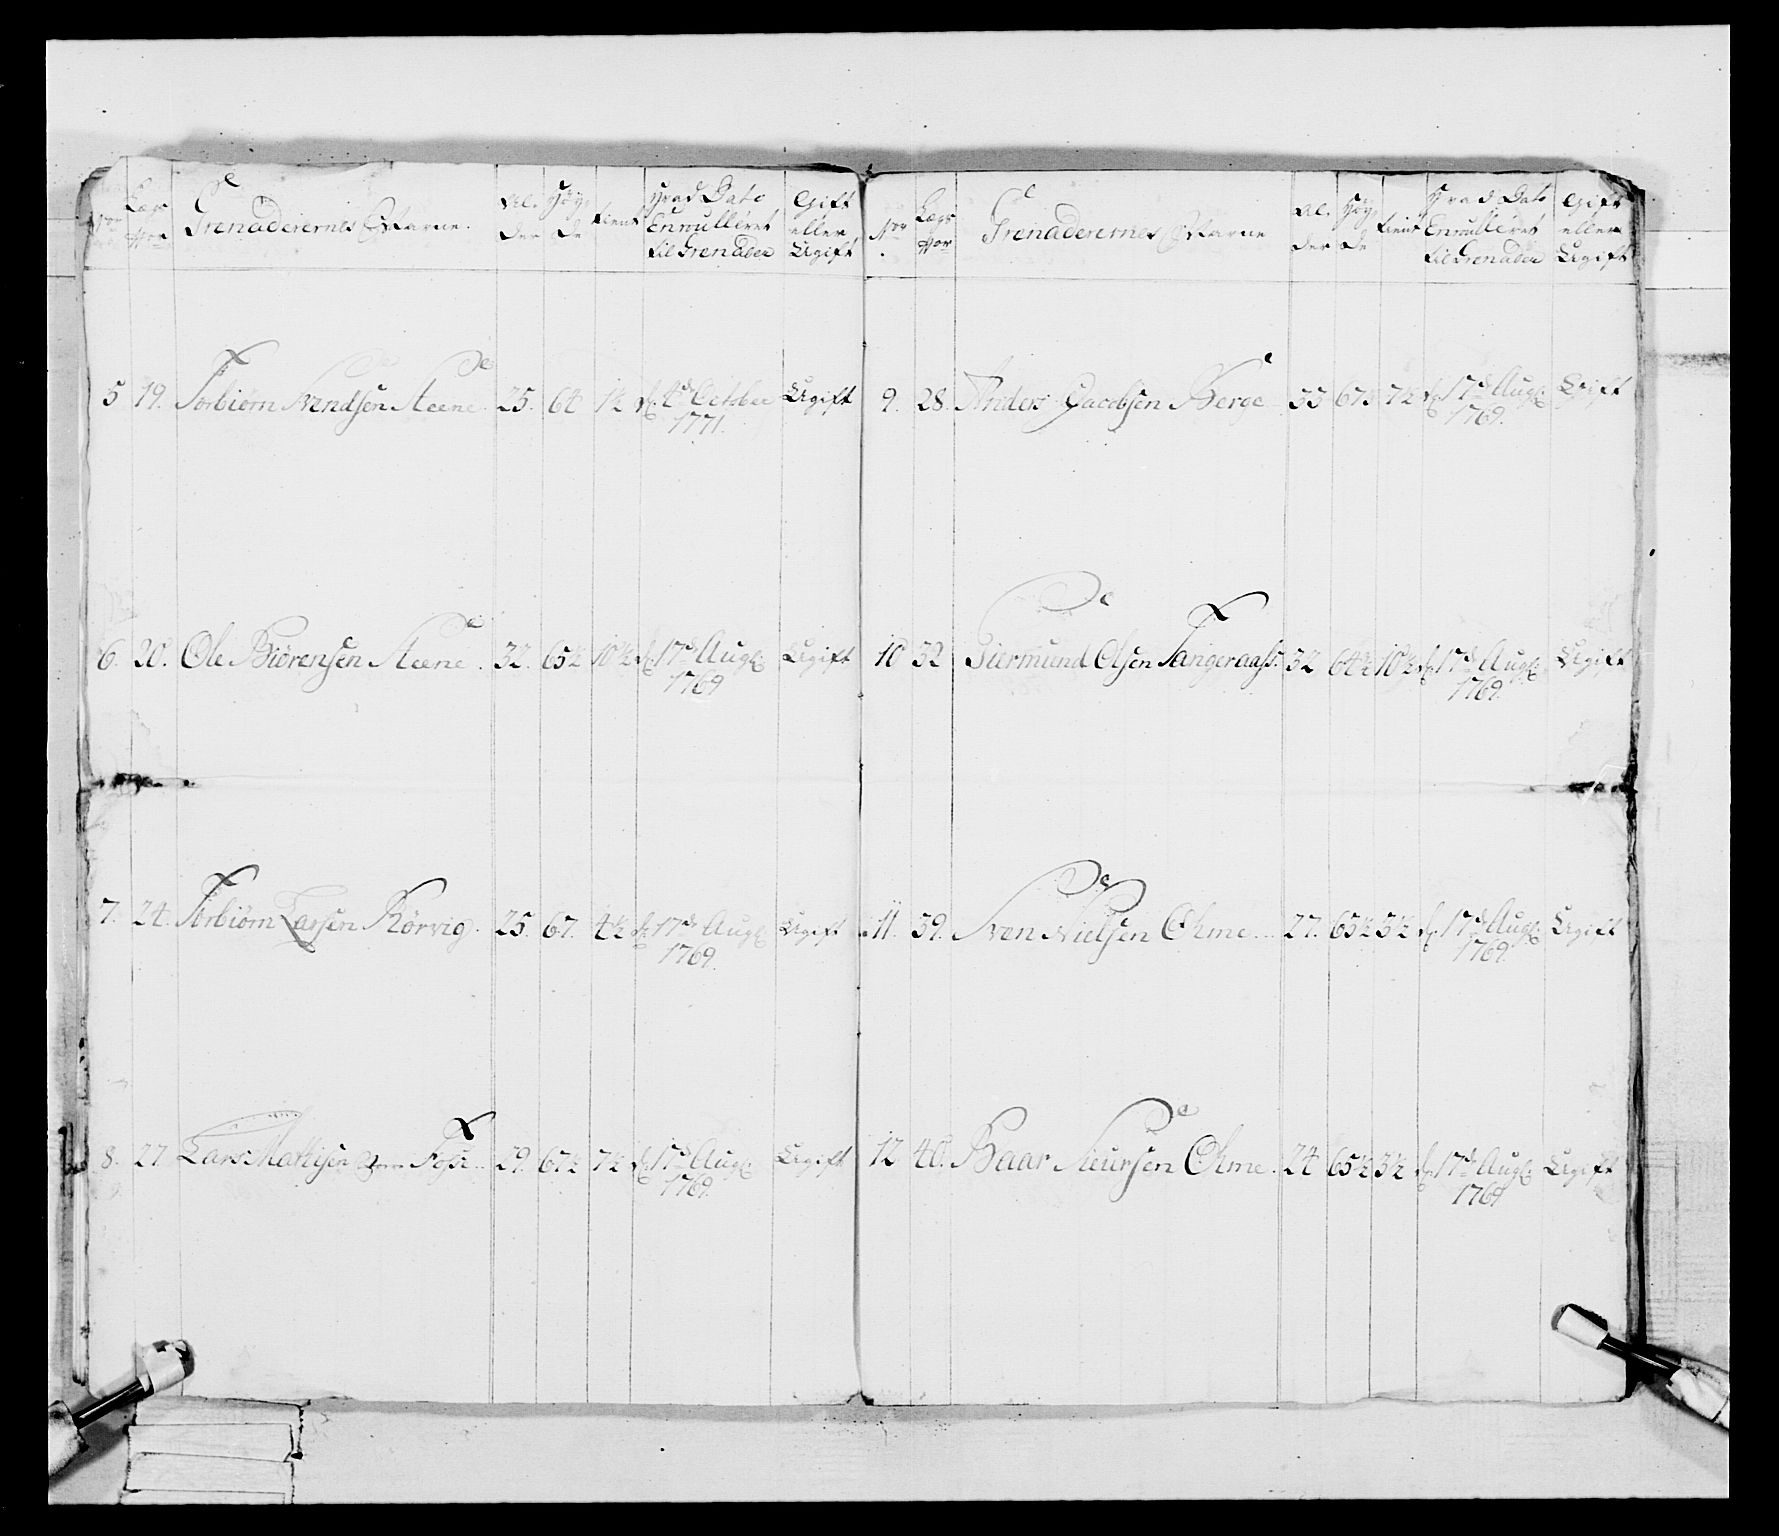 Nor Lægs Nor Grenaderernes Nafne. Al- der Høy- de tient Hvad Dato Enrulleret til Grenader Gift eller Ugift
5 19. Torbiörn Svendsen Aaene. 25. 64 1½ d. 4de October 1771. Ugift
6. 20. Ole Biörensen Aaene. 32. 65½ 10½ d. 17de Aug. 1769 Ugift
7. 24. Torbiörn Larsen Rörvig. 25. 67. 4½ d. 17de Aug. 1769. Ugift
8. 27 Lars Mathisen Fosse. 29. 67½ 7½ d. 17de Aug. 1769. Ugift
Nor. Lægs Nor Grenaderernes Nafne Al- der Høy- de tient Hvad Dato Enrulleret til Grenader Gift eller Ugift
9. 28. Anders Jacobsen Berge 33 67½ 7½ d. 17de Aug. 1769. Gift
10 32 Giermund Olsen Tangeraas. 32 64½ 10½ d. 17de Aug. 1769. Ugift
11. 39. Sven Nielsen Ohme 27. 65½ 3½ d. 17de Aug. 1769. Ugift
12 40. Baar Siursen Ohme. 24 65½ 3½ d. 17de Aug. 1769 Ugift